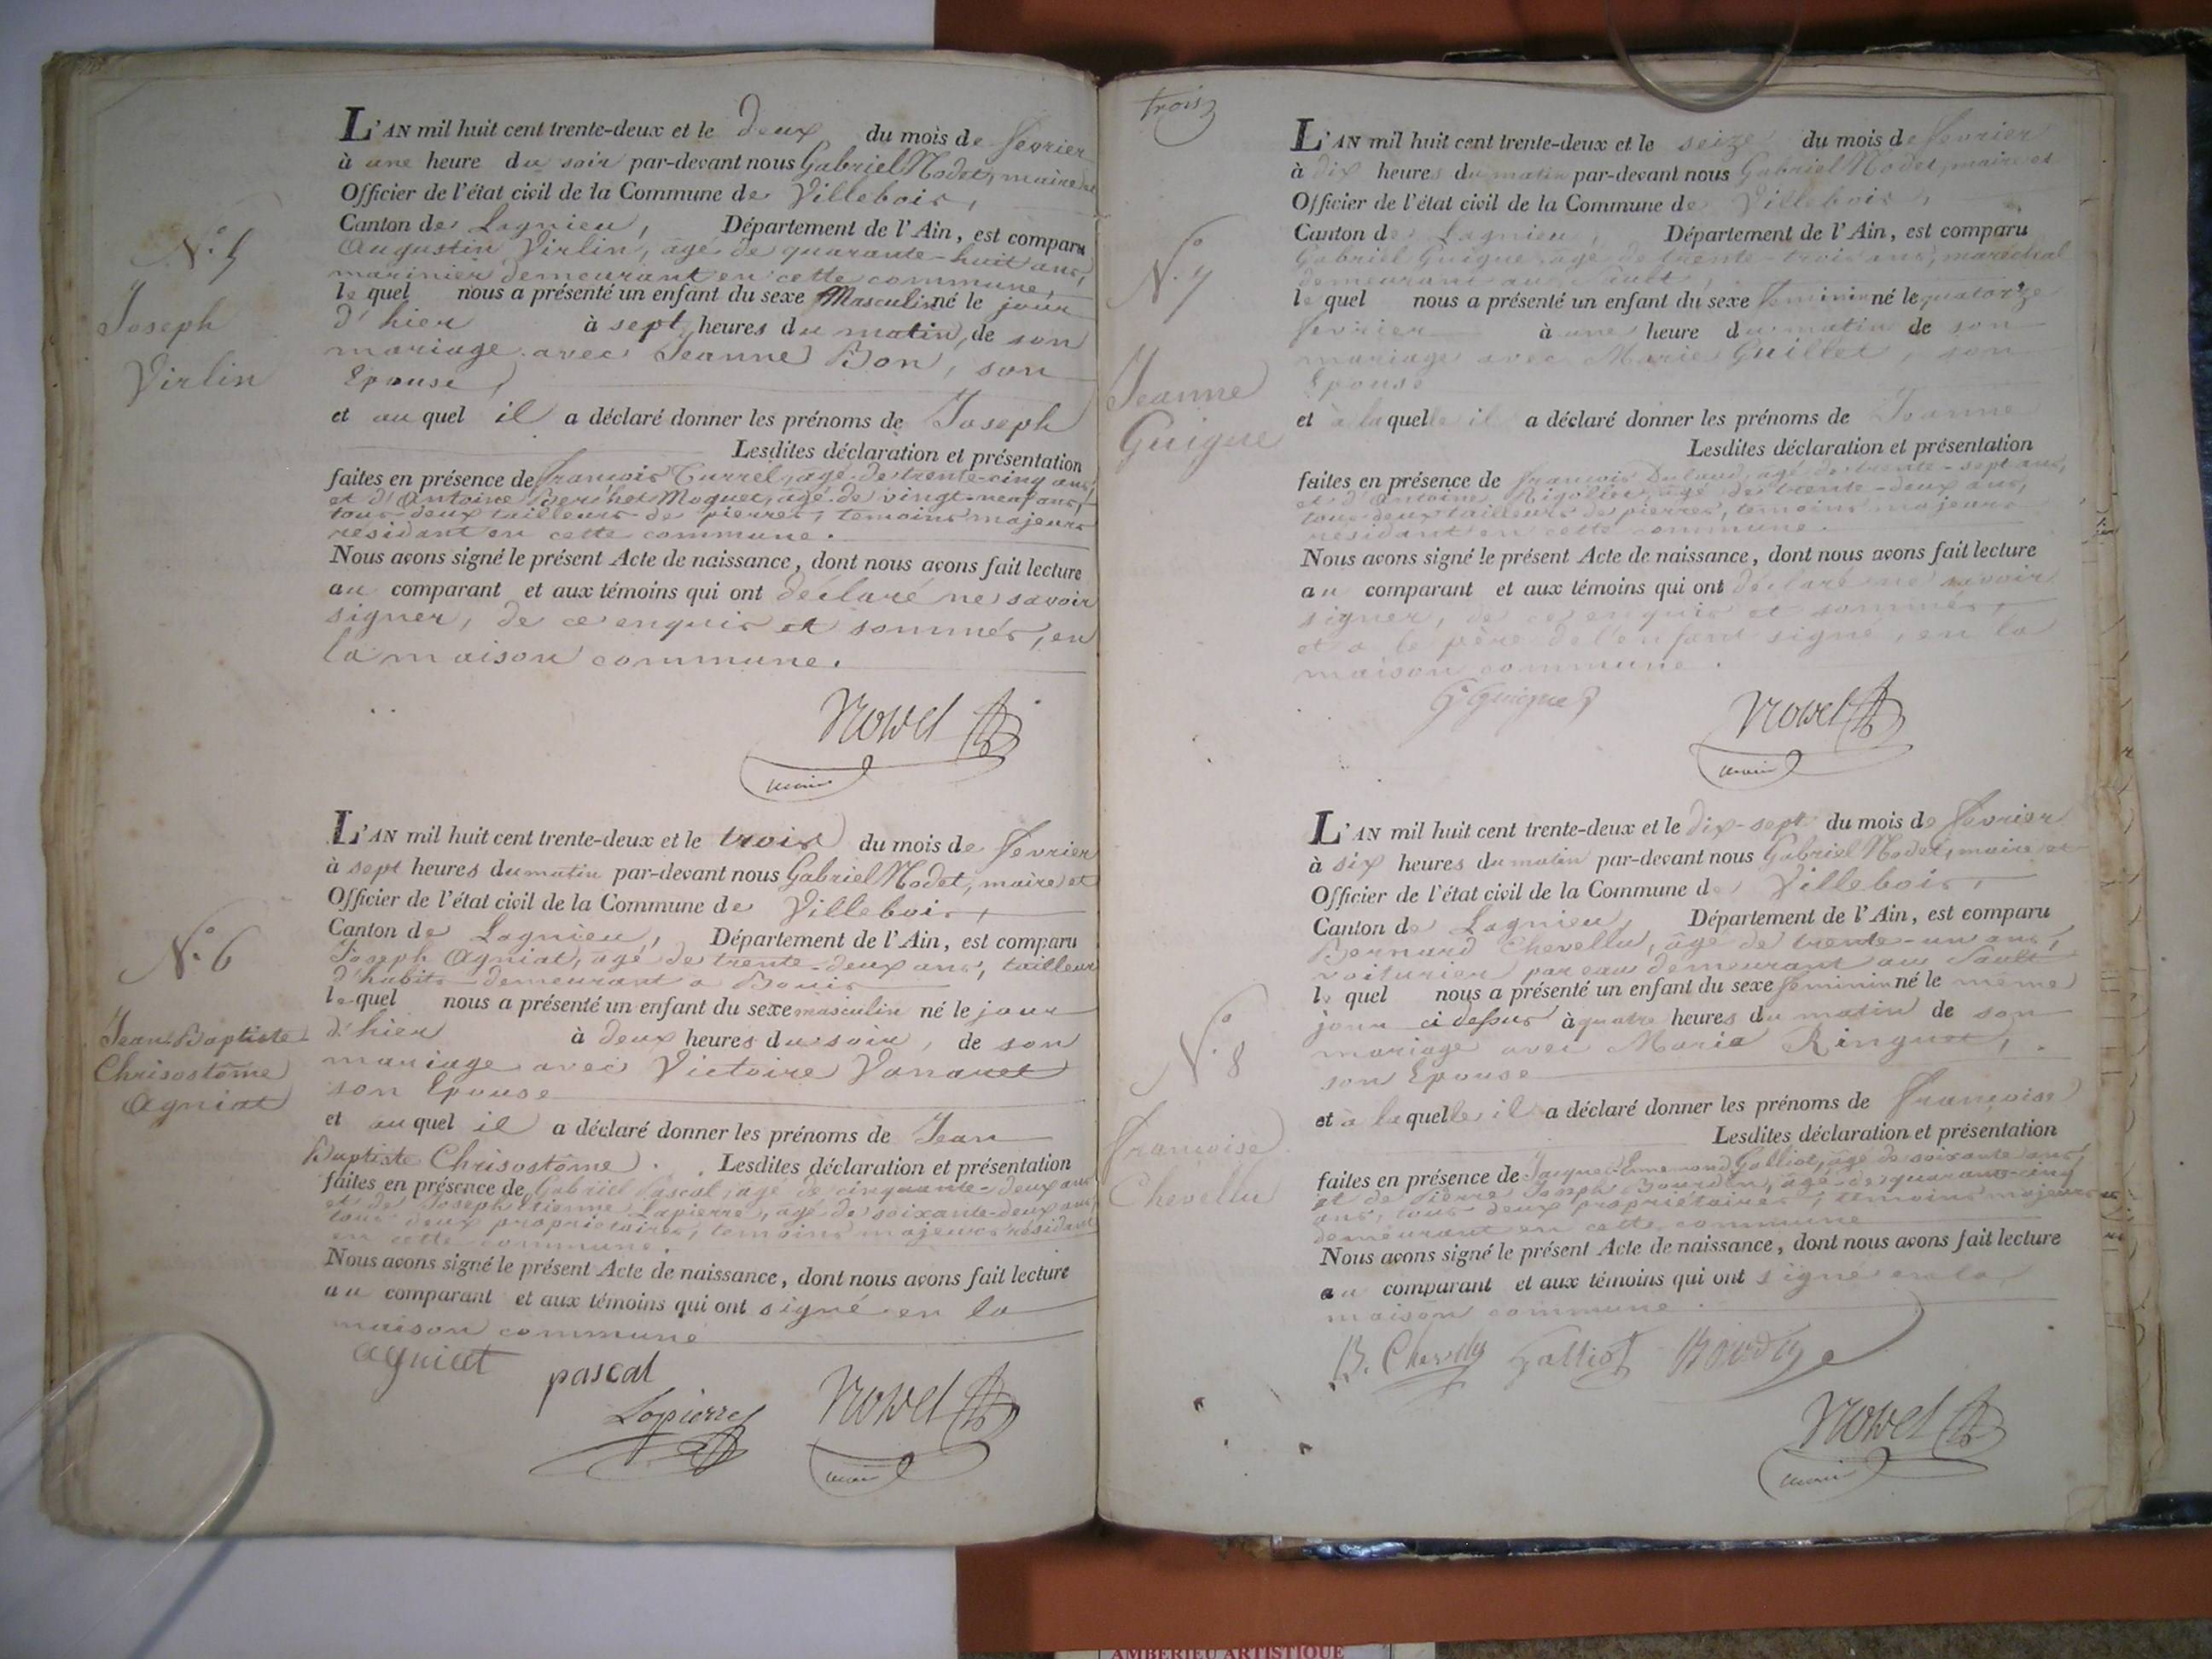 L'AN mil huit cent trente-deux et le deux du mois de fevrier
à une heure du soir par-devant nous Gabriel Nodet, maire et
Officier de l'état civil de la Commune de Villebois,
Canton de Lagnieu, Département de l'Ain, est comparu
Augustin Virlin, âgé de quarante-huit ans,
marinier demeurant en cette commune,
le quel nous a présenté un enfant du sexe Masculin né le jour
d'hier à sept heures du matin, de son
mariage avec Jeanne Bon, son
Epouse,
et au quel il a déclaré donner les prénoms de Joseph
Lesdites déclaration et présentation
faites en présence de françois Currel, agé de trente-cinq ans,
et d'Antoine Berthet Moquet, agé de vingt-neuf ans,
tous deux tailleurs de pierres, temoins majeurs
résidant en cette commune.
Nous avons signé le présent Acte de naissance, dont nous avons fait lecture
au comparant et aux témoins qui ont déclaré ne savoir
signer, de ce enquis et sommés, en
la maison commune.
N.° 5
Joseph
Virlin
maire
L'AN mil huit cent trente-deux et le trois du mois de fevrier
à sept heures du matin par-devant nous Gabriel Nodet, maire et
Officier de l'état civil de la Commune de Villebois,
Canton de Lagnieu, Département de l'Ain, est comparu
Joseph Agniat, agé de trente-deux ans, tailleur
d'habits demeurant a Bouis
le quel nous a présenté un enfant du sexe masculin né le jour
d'hier à deux heures du soir, de son
mariage avec Victoire Vanaret
son Epouse
et au quel il a déclaré donner les prénoms de Jean
Baptiste Chrisostôme. Lesdites déclaration et présentation
faites en présence de Gabriel Pascal, agé de cinquante-deux ans
et de Joseph Etienne Lapierre, agé de soixante-deux ans,
tous deux proprietaires, temoins majeurs résidant
en cette commune.
Nous avons signé le présent Acte de naissance, dont nous avons fait lecture
au comparant et aux témoins qui ont signé en la
maison commune
N.° 6
Jean Baptiste
Chrisostôme
Agniat
agniat
pascal
Lapierre
maire
trois
L'AN mil huit cent trente-deux et le seize du mois de fevrier
à dix heures du matin par-devant nous Gabriel Nodet, maire et
Officier de l'état civil de la Commune de Villebois,
Canton de Lagnieu, Département de l'Ain, est comparu
Gabriel Guigue agé de trente-trois ans, maréchal
demeurant au Sault,
le quel nous a présenté un enfant du sexe feminin né le quatorze
fevrier à une heure du matin de son
mariage avec Marie Guillet, son
Epouse
et à la quelle il a déclaré donner les prénoms de Jeanne
Lesdites déclaration et présentation
faites en présence de françois agé de trente-sept ans,
et d'Antoine Rigollet, agé de trente-deux ans,
tous deux tailleurs de pierres, temoins majeurs
résidant en cette commune.
Nous avons signé le présent Acte de naissance, dont nous avons fait lecture
au comparant et aux témoins qui ont déclaré ne savoir
signer, de ce enquis et sommés,
et a le père de l'enfant signé, en la
maison commune.
N.° 7
Jeanne
Guigue
G. Guigue
maire
L'AN mil huit cent trente-deux et le dix-sept du mois de fevrier
à six heures du matin par-devant nous Gabriel Nodet, maire et
Officier de l'état civil de la Commune de Villebois,
Canton de Lagnieu, Département de l'Ain, est comparu
Bernard Chevellu, agé de trente-un ans,
voiturier par eau demeurant au Sault
le quel nous a présenté un enfant du sexe feminin né le même
jour ci dessus à quatre heures du matin de son
mariage avec Maria Ringuet,
son Epouse
et à la quelle il a déclaré donner les prénoms de françoise
Lesdites déclaration et présentation
faites en présence de Jacques Ennemond Galliot, agé de soixante ans,
et de Pierre Joseph Bourdin, agé de quarante-cinq
ans, tous deux propriétaires, temoins majeurs
demeurant en cette commune
Nous avons signé le présent Acte de naissance, dont nous avons fait lecture
au comparant et aux témoins qui ont signé en la
maison commune.
N.° 8
françoise
Chevellu
B. Chevellu Galliot Bourdin
maire
AMBERIEU ARTISTIQUE